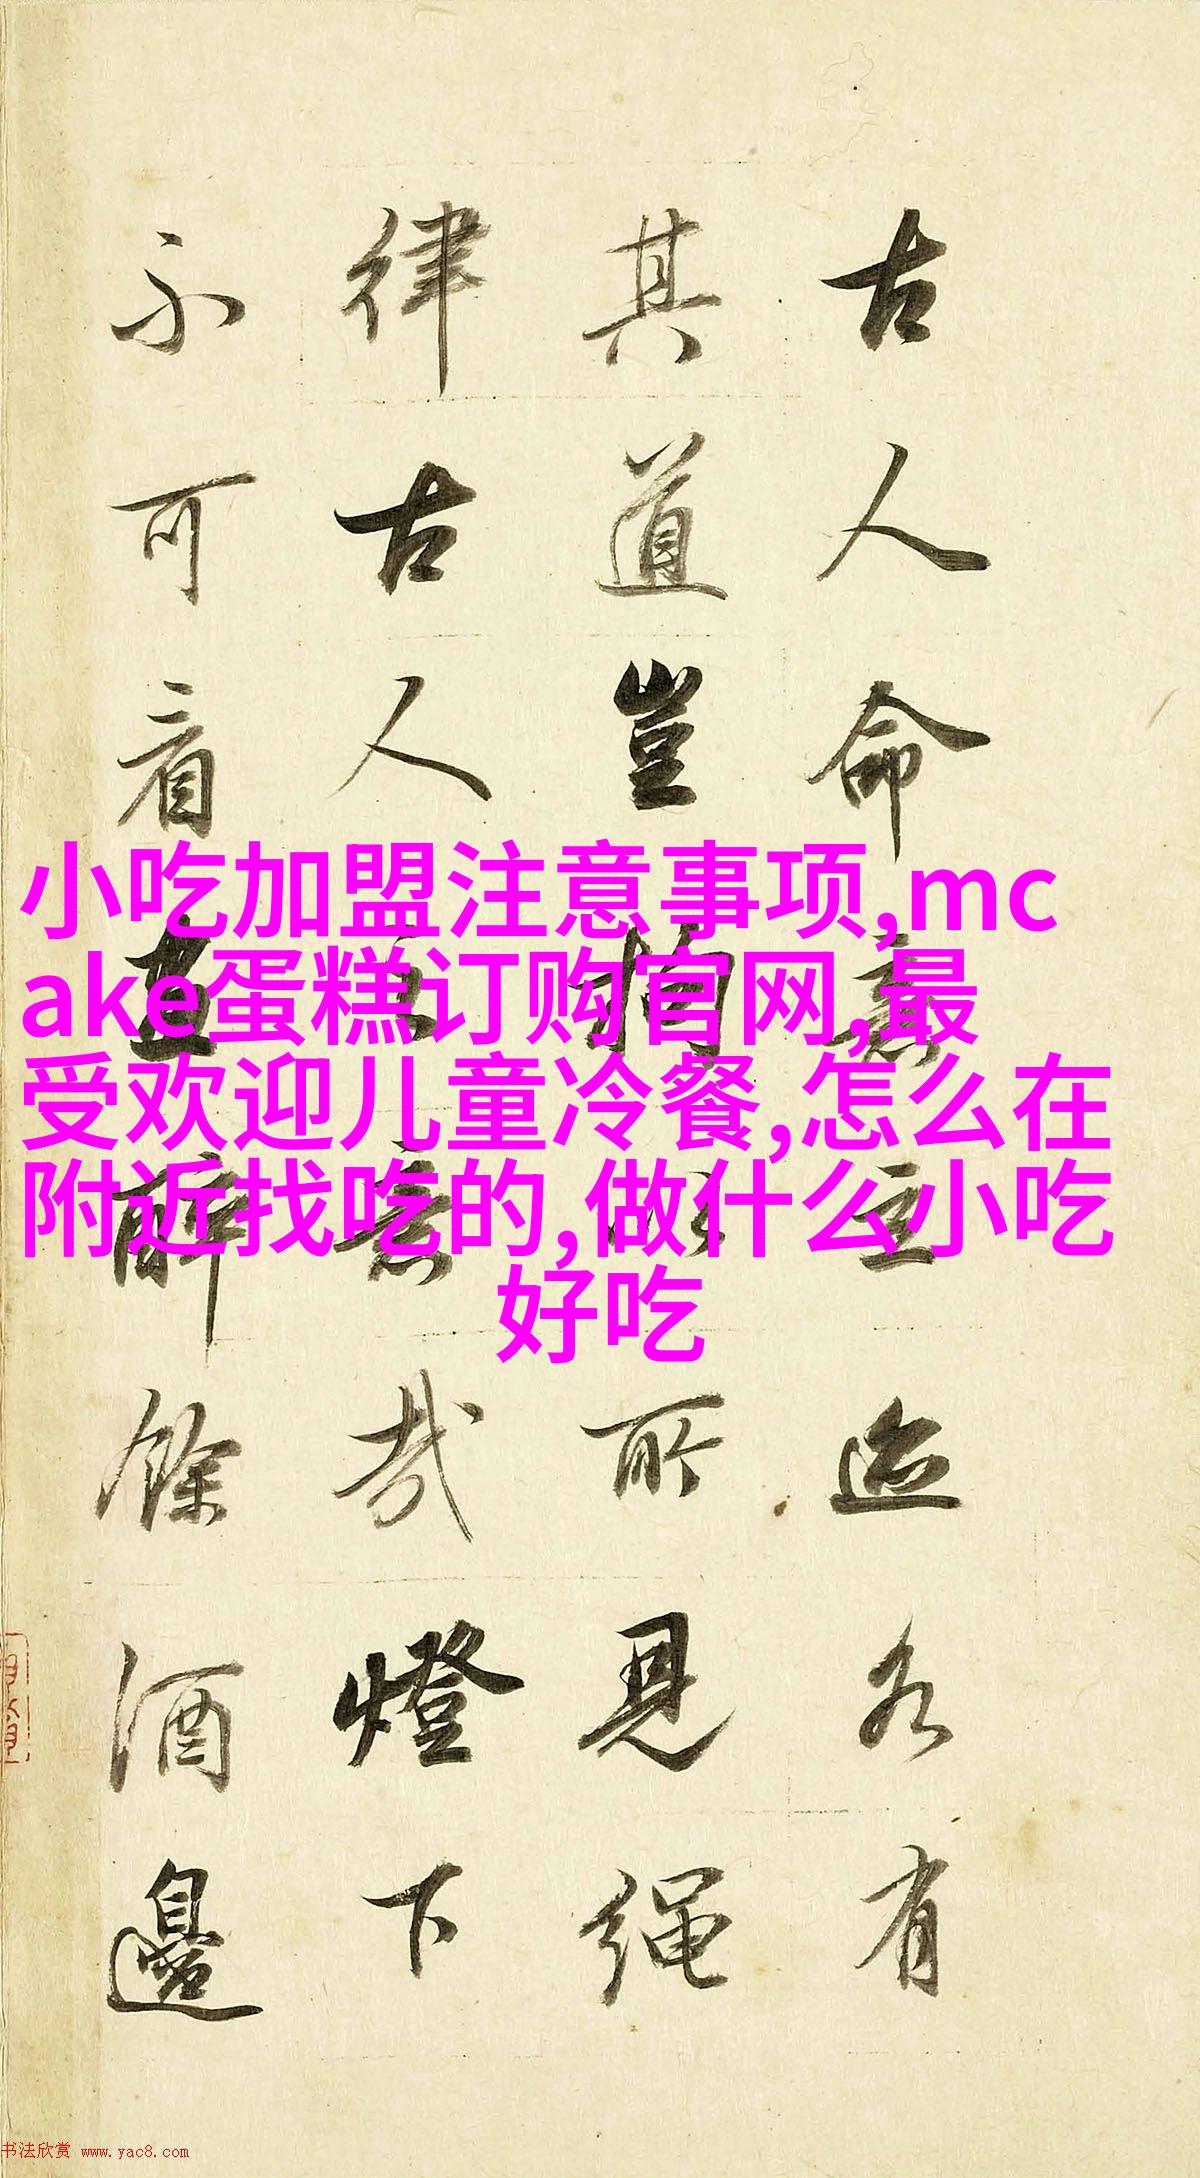 古人命意立迹各有
其道豈拘以所見繩
律古人意哉燈下
不可看畫醉餘酒邊
小吃加盟注意事项,mc
ake蛋糕订购官网,最
受欢迎儿童冷餐,怎么在
附近找吃的,做什么小吃
好吃
书法欣赏 www.yac8.com